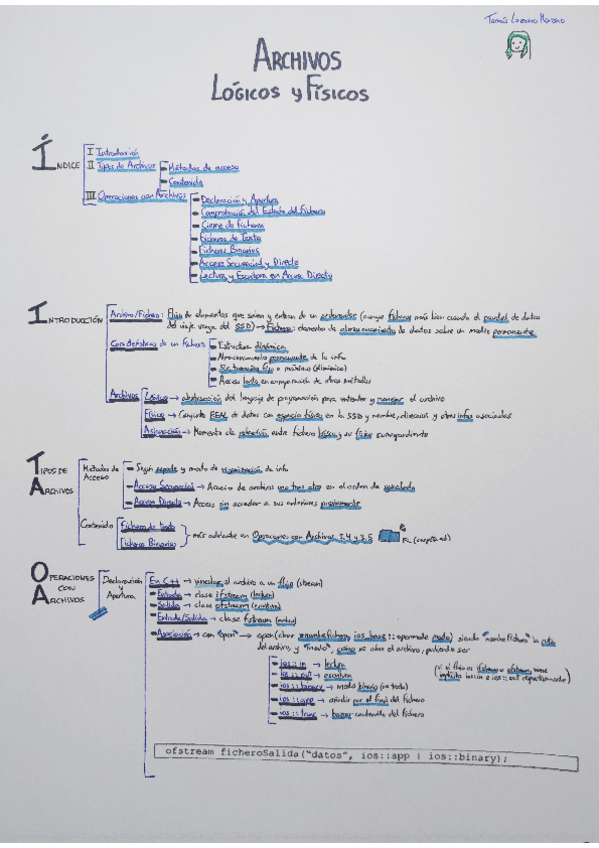 Tomás Lozano Moreno
ARCHIVOS
LÓGICOS y FÍSICOS
ÍNDICE
I Introducción
II Tipos de Archivos
Métodos de acceso
Contenido
III Operaciones con Archivos
Declaración y Apertura
Comprobación del Estado del Fichero
Cierre de Ficheros
Ficheros de Texto
Ficheros Binarios
Acceso Secuencial y Directo
Lectura y Escritura en Acceso Directo
INTRODUCCIÓN
Archivo/Fichero: Flujo de elementos que salen y entran de un ordenador (aunque fichero más bien cuando el caudal de datos
del viaje venga del SSD) → Fichero: elemento de almacenamiento de datos sobre un medio permanente
Características de un fichero
Estructura dinámica
Almacenamiento permanente de la info
Sin tamaño fijo o máximo (dinámico)
Acceso lento en comparación de otros métodos
Archivos
Lógico → abstracción del lenguaje de programación para entender y manejar el archivo
Físico → Conjunto REAL de datos con espacio físico en la SSD y nombre, dirección y otras infos asociadas
Asignación → Momento de relación entre fichero lógico y su físico correspondiente
TIPOS DE ARCHIVOS
Métodos de Acceso
Según soporte y modo de organización de info
Acceso Secuencial → Acceso de archivo uno tras otro en el orden de guardado
Acceso Directo → Acceso sin acceder a sus anteriores previamente
Contenido
Ficheros de texto
Ficheros Binarios
más adelante en Operaciones con Archivos 3.4 y 3.5
OPERACIONES CON ARCHIVOS
Declaración y Apertura
En C++ → vincular el archivo a un flujo (stream)
Entrada → clase ifstream (lectura)
Salida → clase ofstream (escritura)
Entrada/Salida → clase fstream (ambos)
Asociación → con "open" → open(char *nombreFichero, ios_base::openmode modo) siendo "nombreFichero" la ruta
del archivo, y "modo", como se abre el archivo, pudiendo ser
ios::in → lectura
ios::out → escritura
ios::binary → modo binario (no texto)
ios::app → añadir por el final del fichero
ios::trunc → borrar contenido del fichero
(si el flujo es ifstream o ofstream, viene
implícito ios::in e ios::out respectivamente)
ofstream ficheroSalida("datos", ios::app | ios::binary);